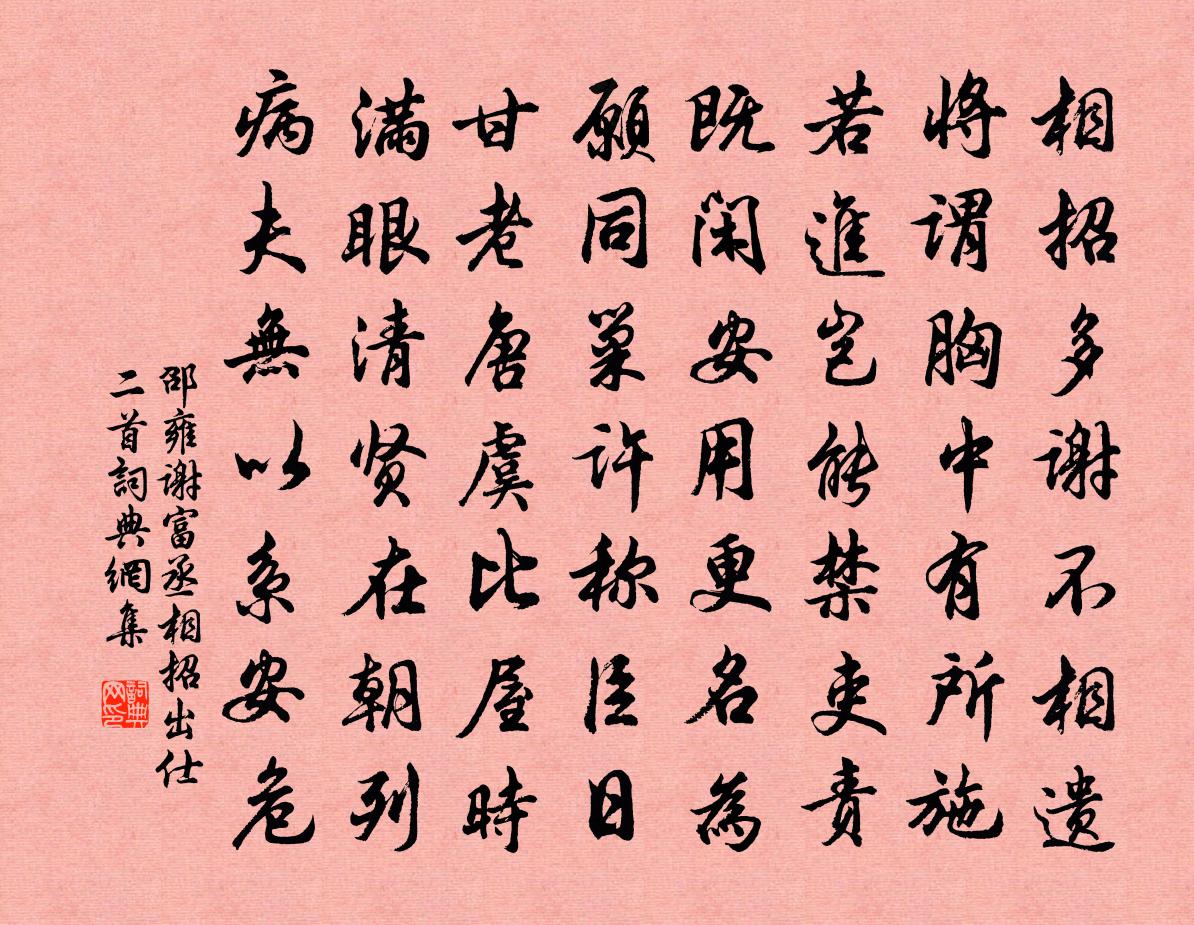 相招多谢不相遗
将谓胸中有所施
若進岂能禁吏责
既闲安用更名為
願同巢许称臣日
甘老唐虞比屋時
满眼清贤在朝列
病夫無以系安危
邵雍谢富丞相招出仕
二首詞典網集
詞典网印